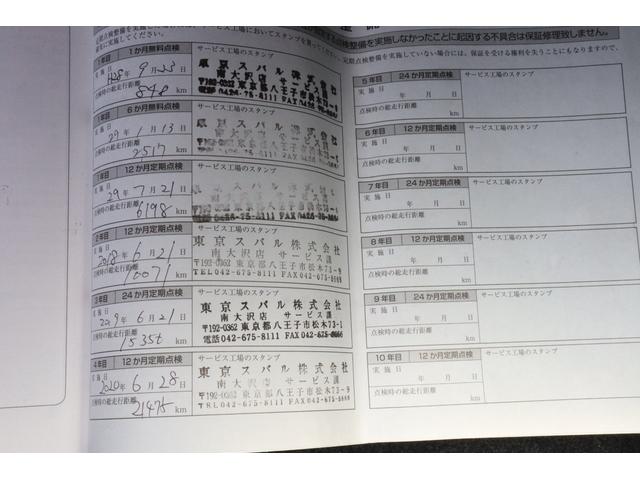 点検整備を実施しなかったことに起因する不具合は保証修理致しません。
定期点検整備を実施していない場合には、保証を受ける権利を失うことにもなりますので、
1年目 1か月無料点検 サービス工場のスタンプ
実施日 H28年9月23日
点検時の総走行距離 848 km
東京スバル株式会社
南大沢店 サービス課
〒192-0362 東京都八王子市松木73-1
1年目 6か月無料点検 サービス工場のスタンプ
実施日 29年1月13日
点検時の総走行距離 2517 km
東京スバル株式会社
南大沢店 サービス課
1年目 12か月定期点検 サービス工場のスタンプ
実施日 29年7月21日
点検時の総走行距離 6198 km
2年目 12か月定期点検 サービス工場のスタンプ
実施日 2018年6月21日
点検時の総走行距離 10071 km
東京スバル株式会社
南大沢店 サービス課
〒192-0362 東京都八王子市松木73-1
TEL 042-675-8111 FAX 042-675-8666
3年目 24か月定期点検 サービス工場のスタンプ
実施日 2019年6月21日
点検時の総走行距離 15356 km
東京スバル株式会社
南大沢店 サービス課
〒192-0362 東京都八王子市松木73-1
電話 042-675-8111 FAX 042-675-8666
4年目 12か月定期点検 サービス工場のスタンプ
実施日 2020年6月28日
点検時の総走行距離 21475 km
東京スバル株式会社
南大沢店 サービス課
〒192-0362 東京都八王子市松木73-1
TEL 042-675-8111 FAX 042-675-8666
5年目 24か月定期点検 サービス工場のスタンプ
実施日 年 月 日
点検時の総走行距離 km
6年目 12か月定期点検 サービス工場のスタンプ
実施日 年 月 日
点検時の総走行距離 km
7年目 24か月定期点検 サービス工場のスタンプ
実施日 年 月 日
点検時の総走行距離 km
8年目 12か月定期点検 サービス工場のスタンプ
実施日 年 月 日
点検時の総走行距離 km
9年目 24か月定期点検 サービス工場のスタンプ
実施日 年 月 日
点検時の総走行距離 km
10年目 12か月定期点検 サービス工場のスタンプ
実施日 年 月 日
点検時の総走行距離 km